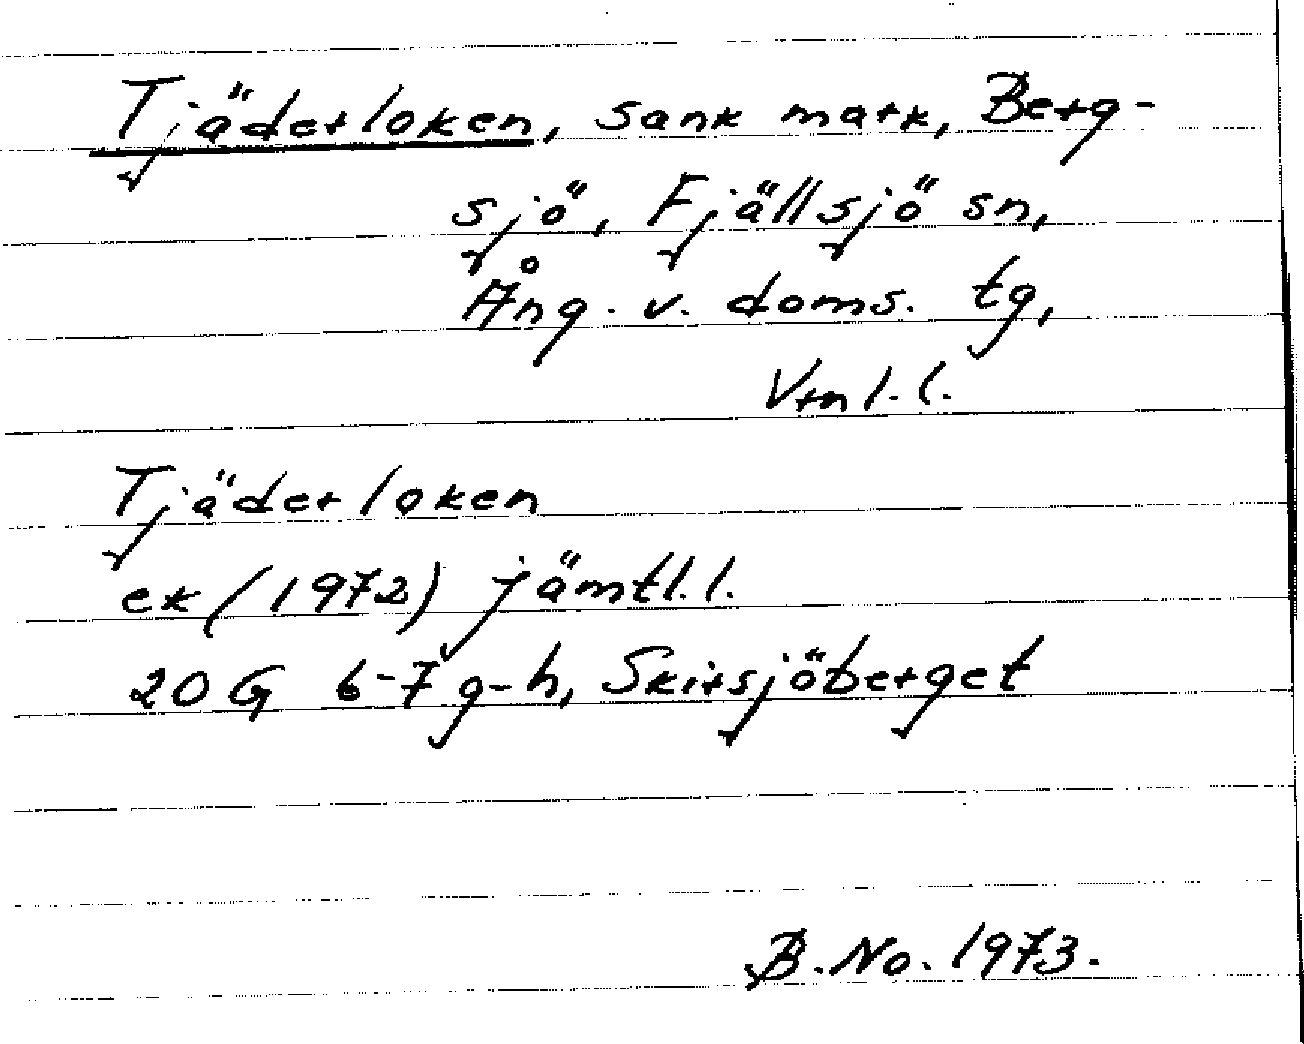 Tjäderloken, sank mark, Berg-
sjö, Fjällsjö sn,
Ång. v. doms. tg,
Vrnl. l.
Tjäderloken
ek (1972) jämtl. l.
20 G 6-7 g-h, Skirsjöberget
B. No. 1973.